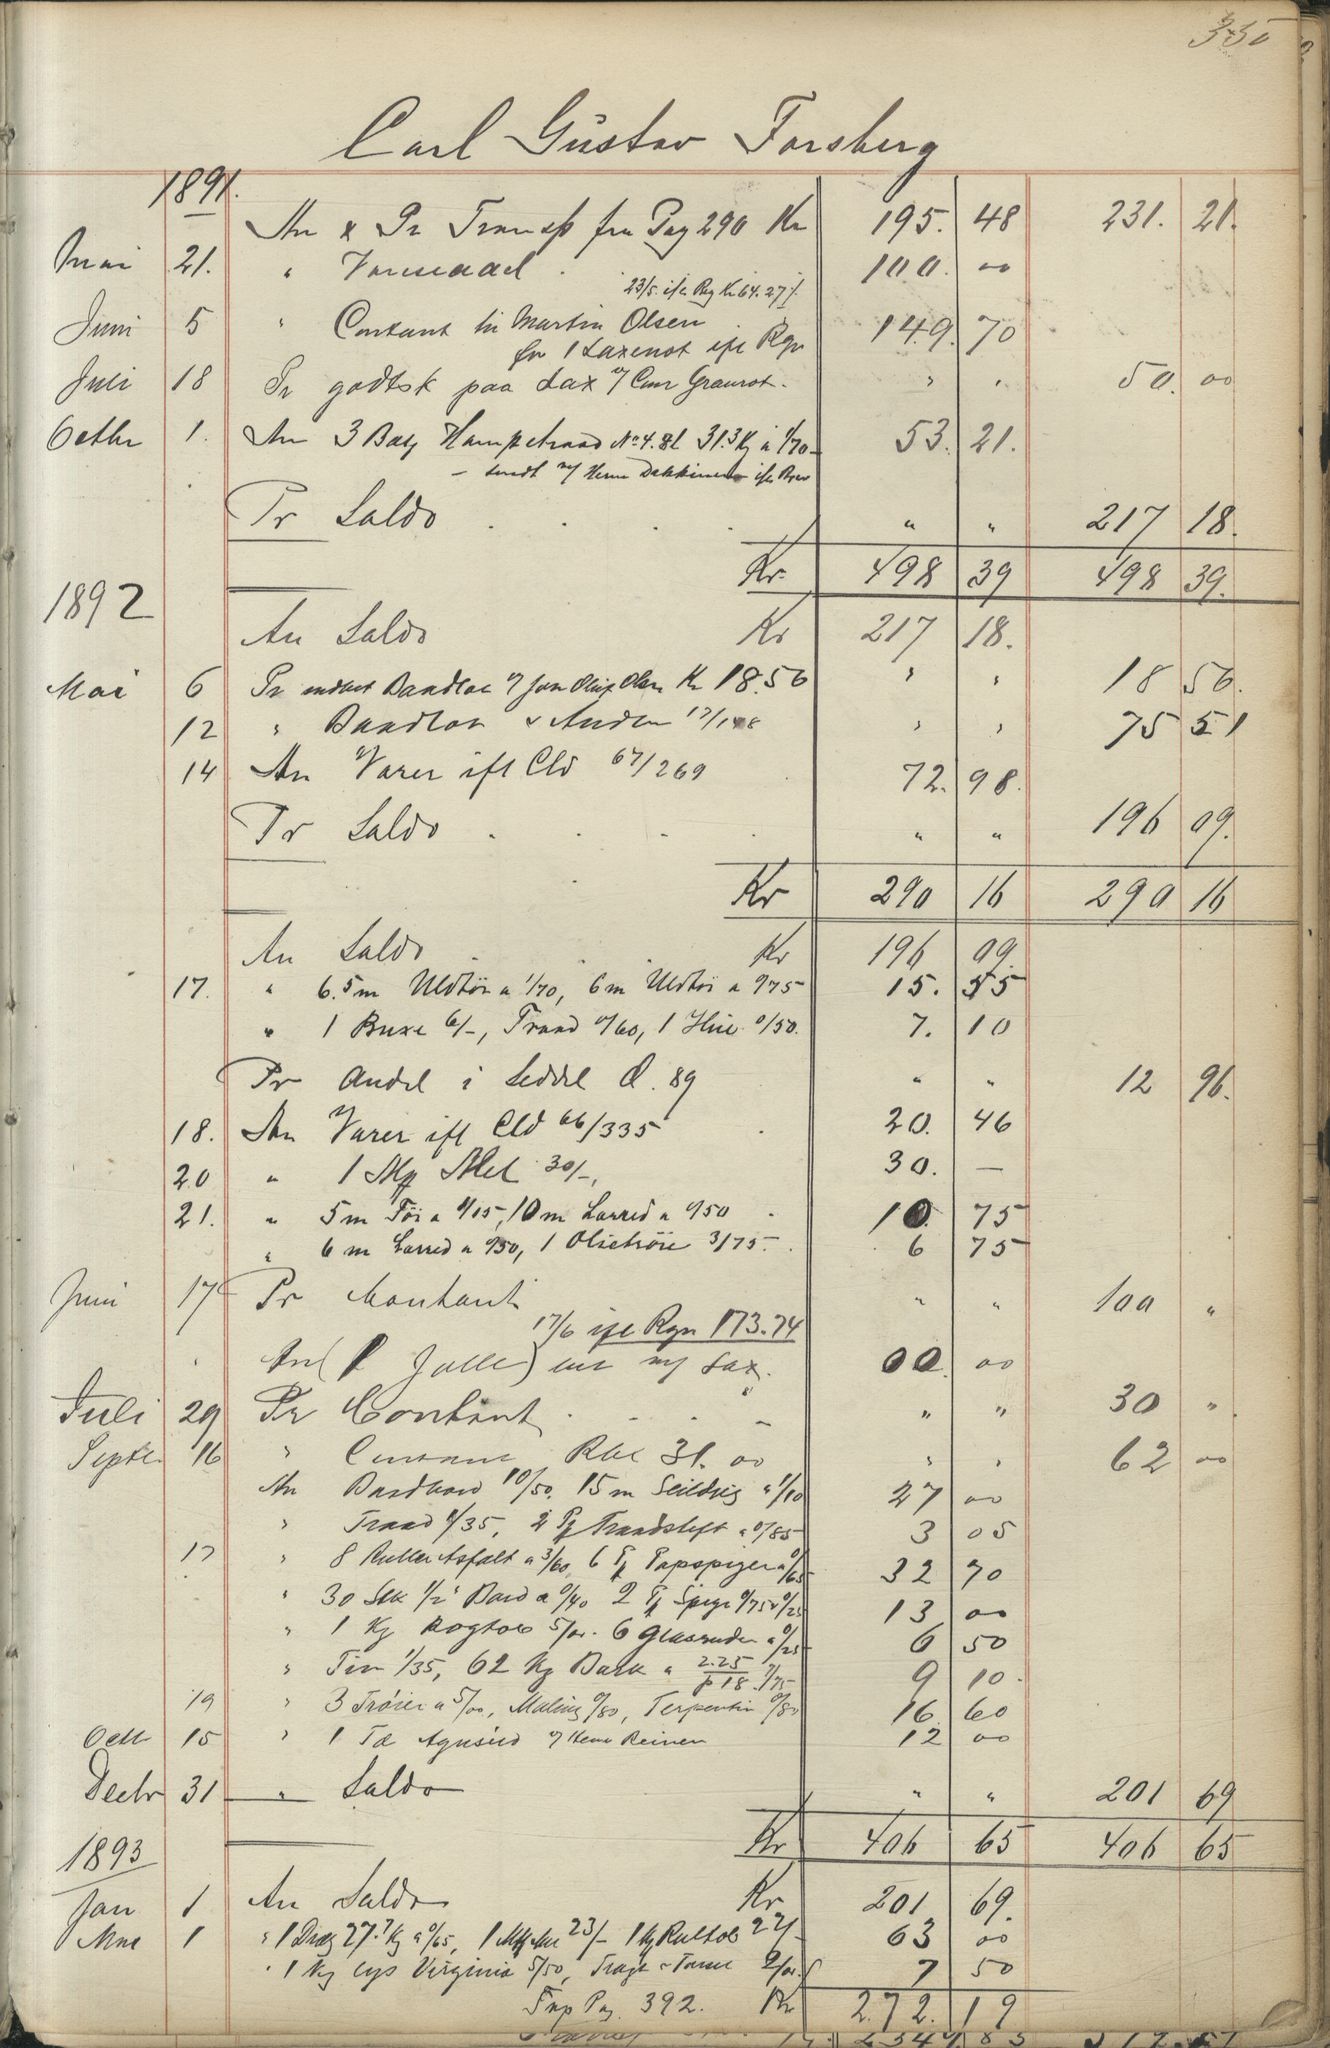 350
Carl Gustav Forsberg
1891.
An & Pr Transp fra Pag 290 Kr 195. 48 231. 21.
Mai 21. " Vareudtal 100. 00
23/5 ifl. Rg Kr 64.27
Juni 5 " Contant til Martin Olsen
for 1 Laxenot ifl Rgn 149. 70
Juli 18 Pr godtsk paa Lax " " 50. 00
Octbr 1. An 3 Bdt Hamptraad No 4. 31.3 Kg à 1/70 53. 21.
– sendt m/ ifl Brev
Pr Saldo " " 217 18.
Kr 498 39 498 39.
1892
An Saldo Kr 217 18.
Mai 6 Pr Baadlot Olsen Kr 18.56 " " 18 56.
12 " Baadlot " " 75 51
14 An Varer ifl Cld 67/269 72. 98.
Pr Saldo " " 196 09.
Kr 290 16 290 16
An Saldo Kr 196 09.
17. " 6.5 m Uldtöi a 1/70, 6 m Uldtöi a 0/75 15. 55
" 1 Buxe 6/–, Traad 0/60, 1 Hue 0/50. 7. 10
Pr Andel i Seddel d. 89 " " 12 96.
18. An Varer ifl Cld 66/335 20. 46
20 " 1 Mel 30/–, 30. —
21. " 5 m Töi a 1/15, 10 m Lærred a 0/50 10. 75
" 6 m Lærred a 0/50, 1 Olietröie 3/75 6 75
Juni 17 Pr Contant " " 100 "
17/6 ifl Rgn 173.74
An (1 Jolle) m/ Lax. 00 00
Juli 29 Pr Contant " " 30 "
Septr 16 " Rbl 31. 00 " " 62 00
An Bordved 10/50. 15 m Seildug a 1/10 27 00
" Traad 1/35, 2 Pk Traadstift a 0/85 3 05
17 " 8 Ruller Asfalt a 3/60, 6 Pk Papspiger a 0/65 32 70
" 30 Stk 1/2" Bord a 0/40 2 Pk Spiger 0/75 0/25 13 00
" 1 Kg Rogtob 5/00. 6 Glasruder a 0/25 6 50
" Tin 1/35, 62 Kg Bark a 2.25/p 18 7/75 9 10.
19 " 3 Tröier a 5/00, Maling 0/80, Terpentin 0/80 16. 60
Octr 15 " 1 Td Agnsild 12 00
Decbr 31 " Saldo " " 201 69
Kr 406 65 406 65
1893
Jan 1 An Saldo Kr 201 69.
1 " 1 27.7 Kg a 0/65, 1 23/– 1 Kg Rultob 22/– 63 00
" 1 Kg Virginia 5/50, 2/00 7 50
Trsp Pag. 392. Kr 272. 19